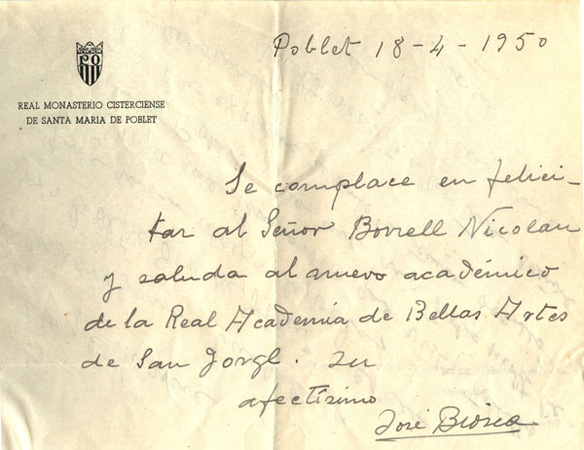 Poblet 18-4-1950
REAL MONASTERIO CISTERCIENSE
DE SANTA MARIA DE POBLET
Se complace en felici-
tar al Señor Borrell Nicolau
y saluda al nuevo académico
de la Real Academia de Bellas Artes
de San Jorge. Su
afectísimo
José Biosca